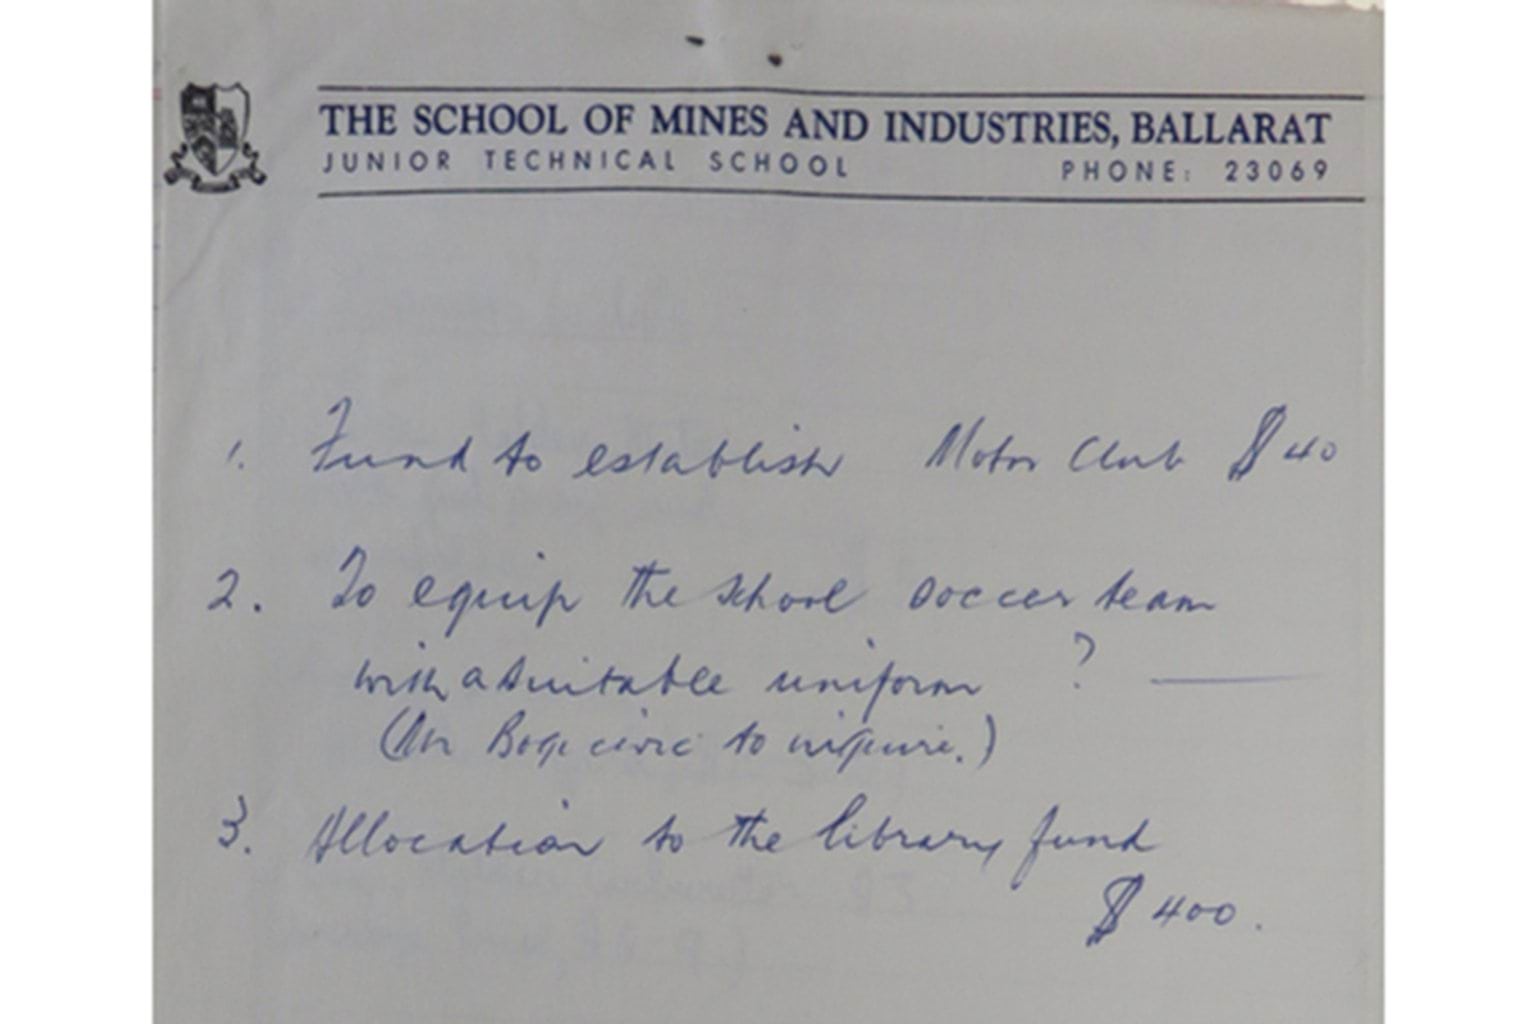 THE SCHOOL OF MINES AND INDUSTRIES, BALLARAT
JUNIOR TECHNICAL SCHOOL PHONE: 23069
1. Fund to establish Motor Club $40
2. To equip the school soccer team
with a suitable uniform ?
(Mr to inquire.)
3. Allocation to the library fund
$400.